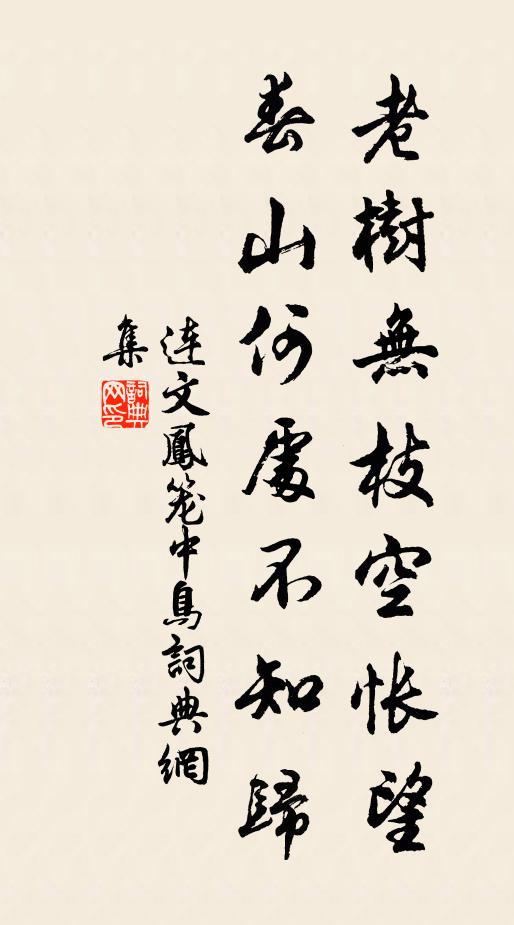 老樹無枝空悵望
春山何處不知歸
連文鳳籠中鳥詞典網
集
詞典
网印